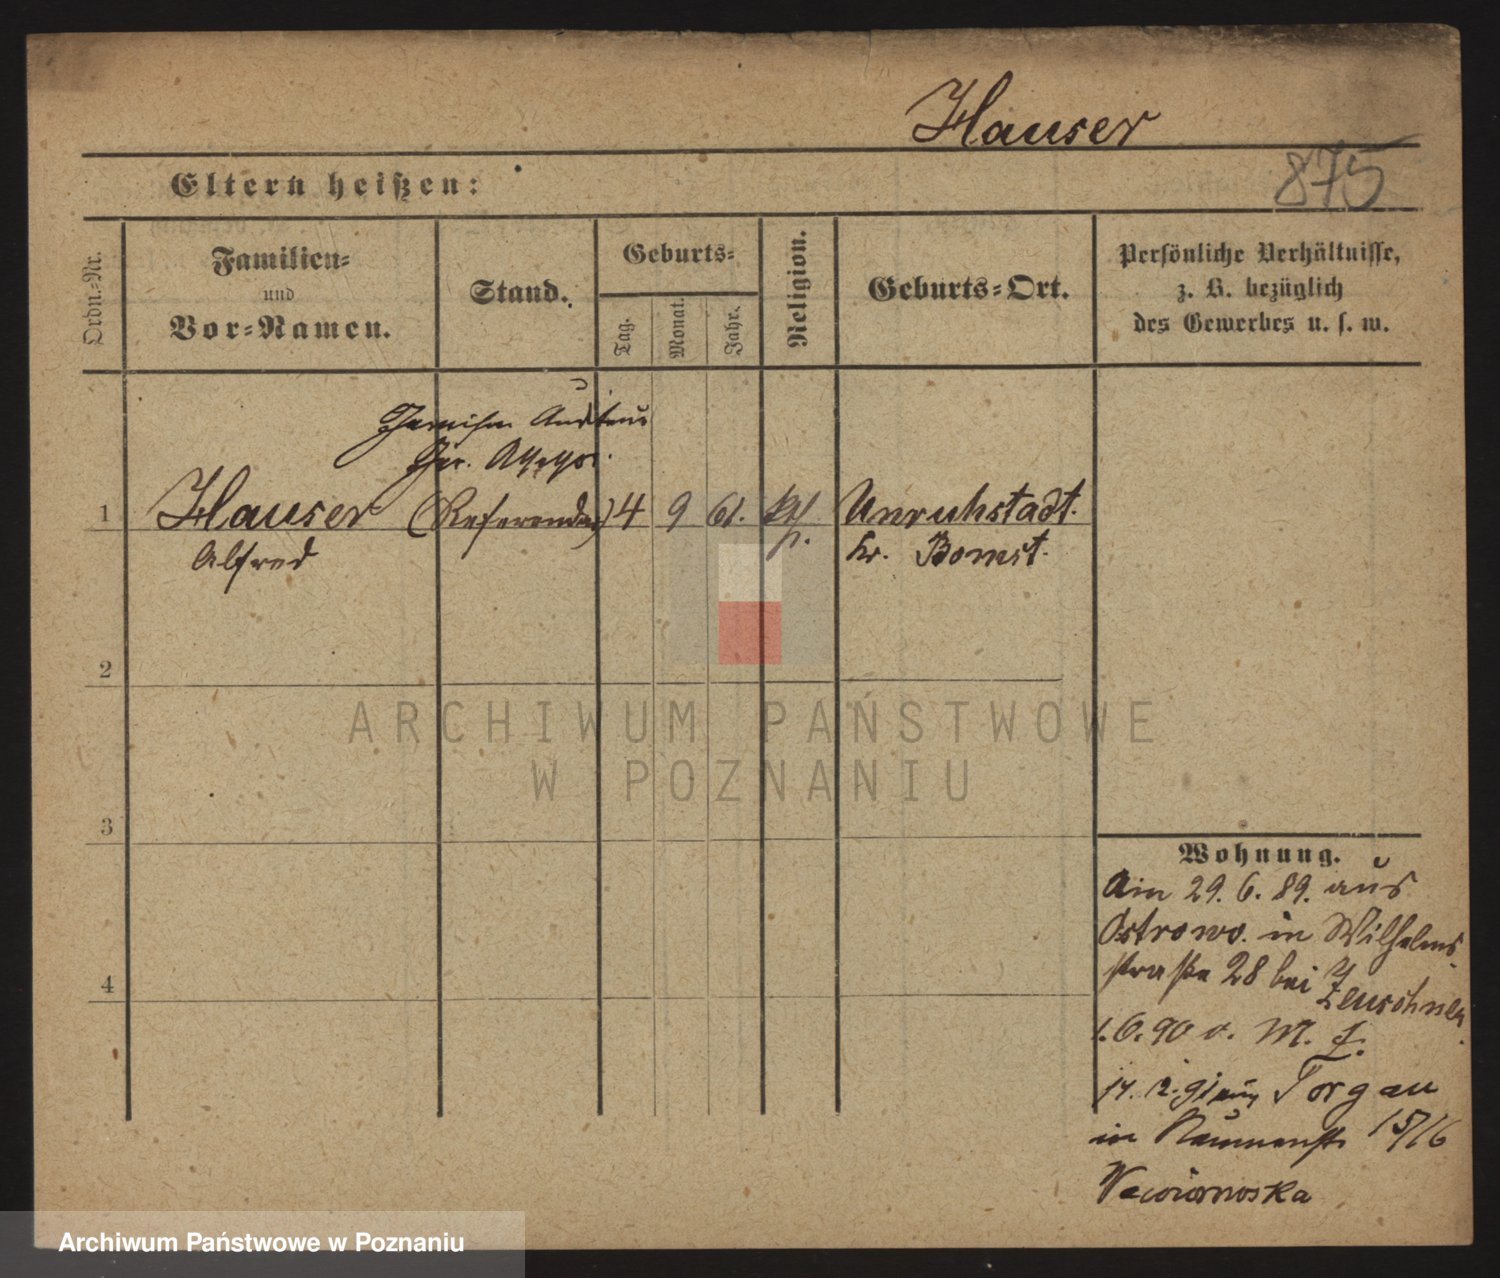 Hauser
875
Eltern heißen:
Ordn.-Nr.
Familien-
und
Vor-Namen.
Stand.
Geburts-
Tag.
Monat.
Jahr.
Religion.
Geburts-Ort.
Persönliche Verhältnisse,
z. B. bezüglich
des Gewerbes u. s. w.
Garnison Auditeur
Ger. Assessor.
1 Hauser (Referendar) 4 9 61. Unruhstadt.
Alfred Kr. Bomst.
2
3
4
Wohnung.
Am 29. 6. 89. aus
Ostrowo. in Wilhelms
straße 28 bei
1. 6. 90 v. M.
91 aus Torgau
in 15/16
ARCHIWUM PAŃSTWOWE
W POZNANIU
Archiwum Państwowe w Poznaniu